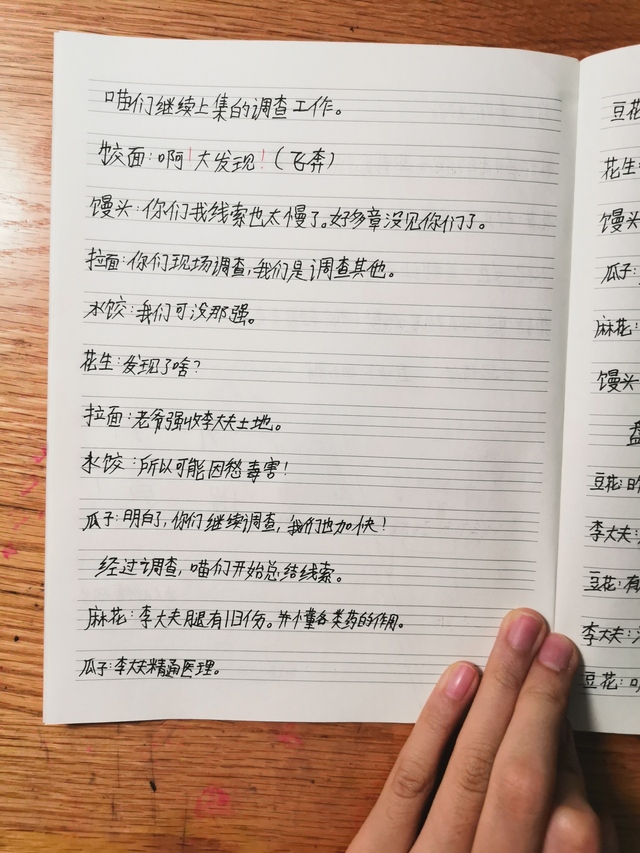 喵们继续上集的调查工作。
饺面:啊!大发现!(飞奔)
馒头:你们我线索也太慢了。好多章没见你们了。
拉面:你们现场调查,我们是调查其他。
水饺:我们可没那强。
花生:发现了啥?
拉面:老爷强收李大夫土地。
水饺:所以可能因愁毒害!
瓜子:明白了,你们继续调查,我们也加快!
经过调查,喵们开始总结线索。
麻花:李大夫腿有旧伤。并懂各类药的作用。
瓜子:李大夫精通医理。
豆花
花生:
馒头
瓜子:
麻花:
馒头
豆花:
李大夫:
豆花:有
李大夫:
豆花: